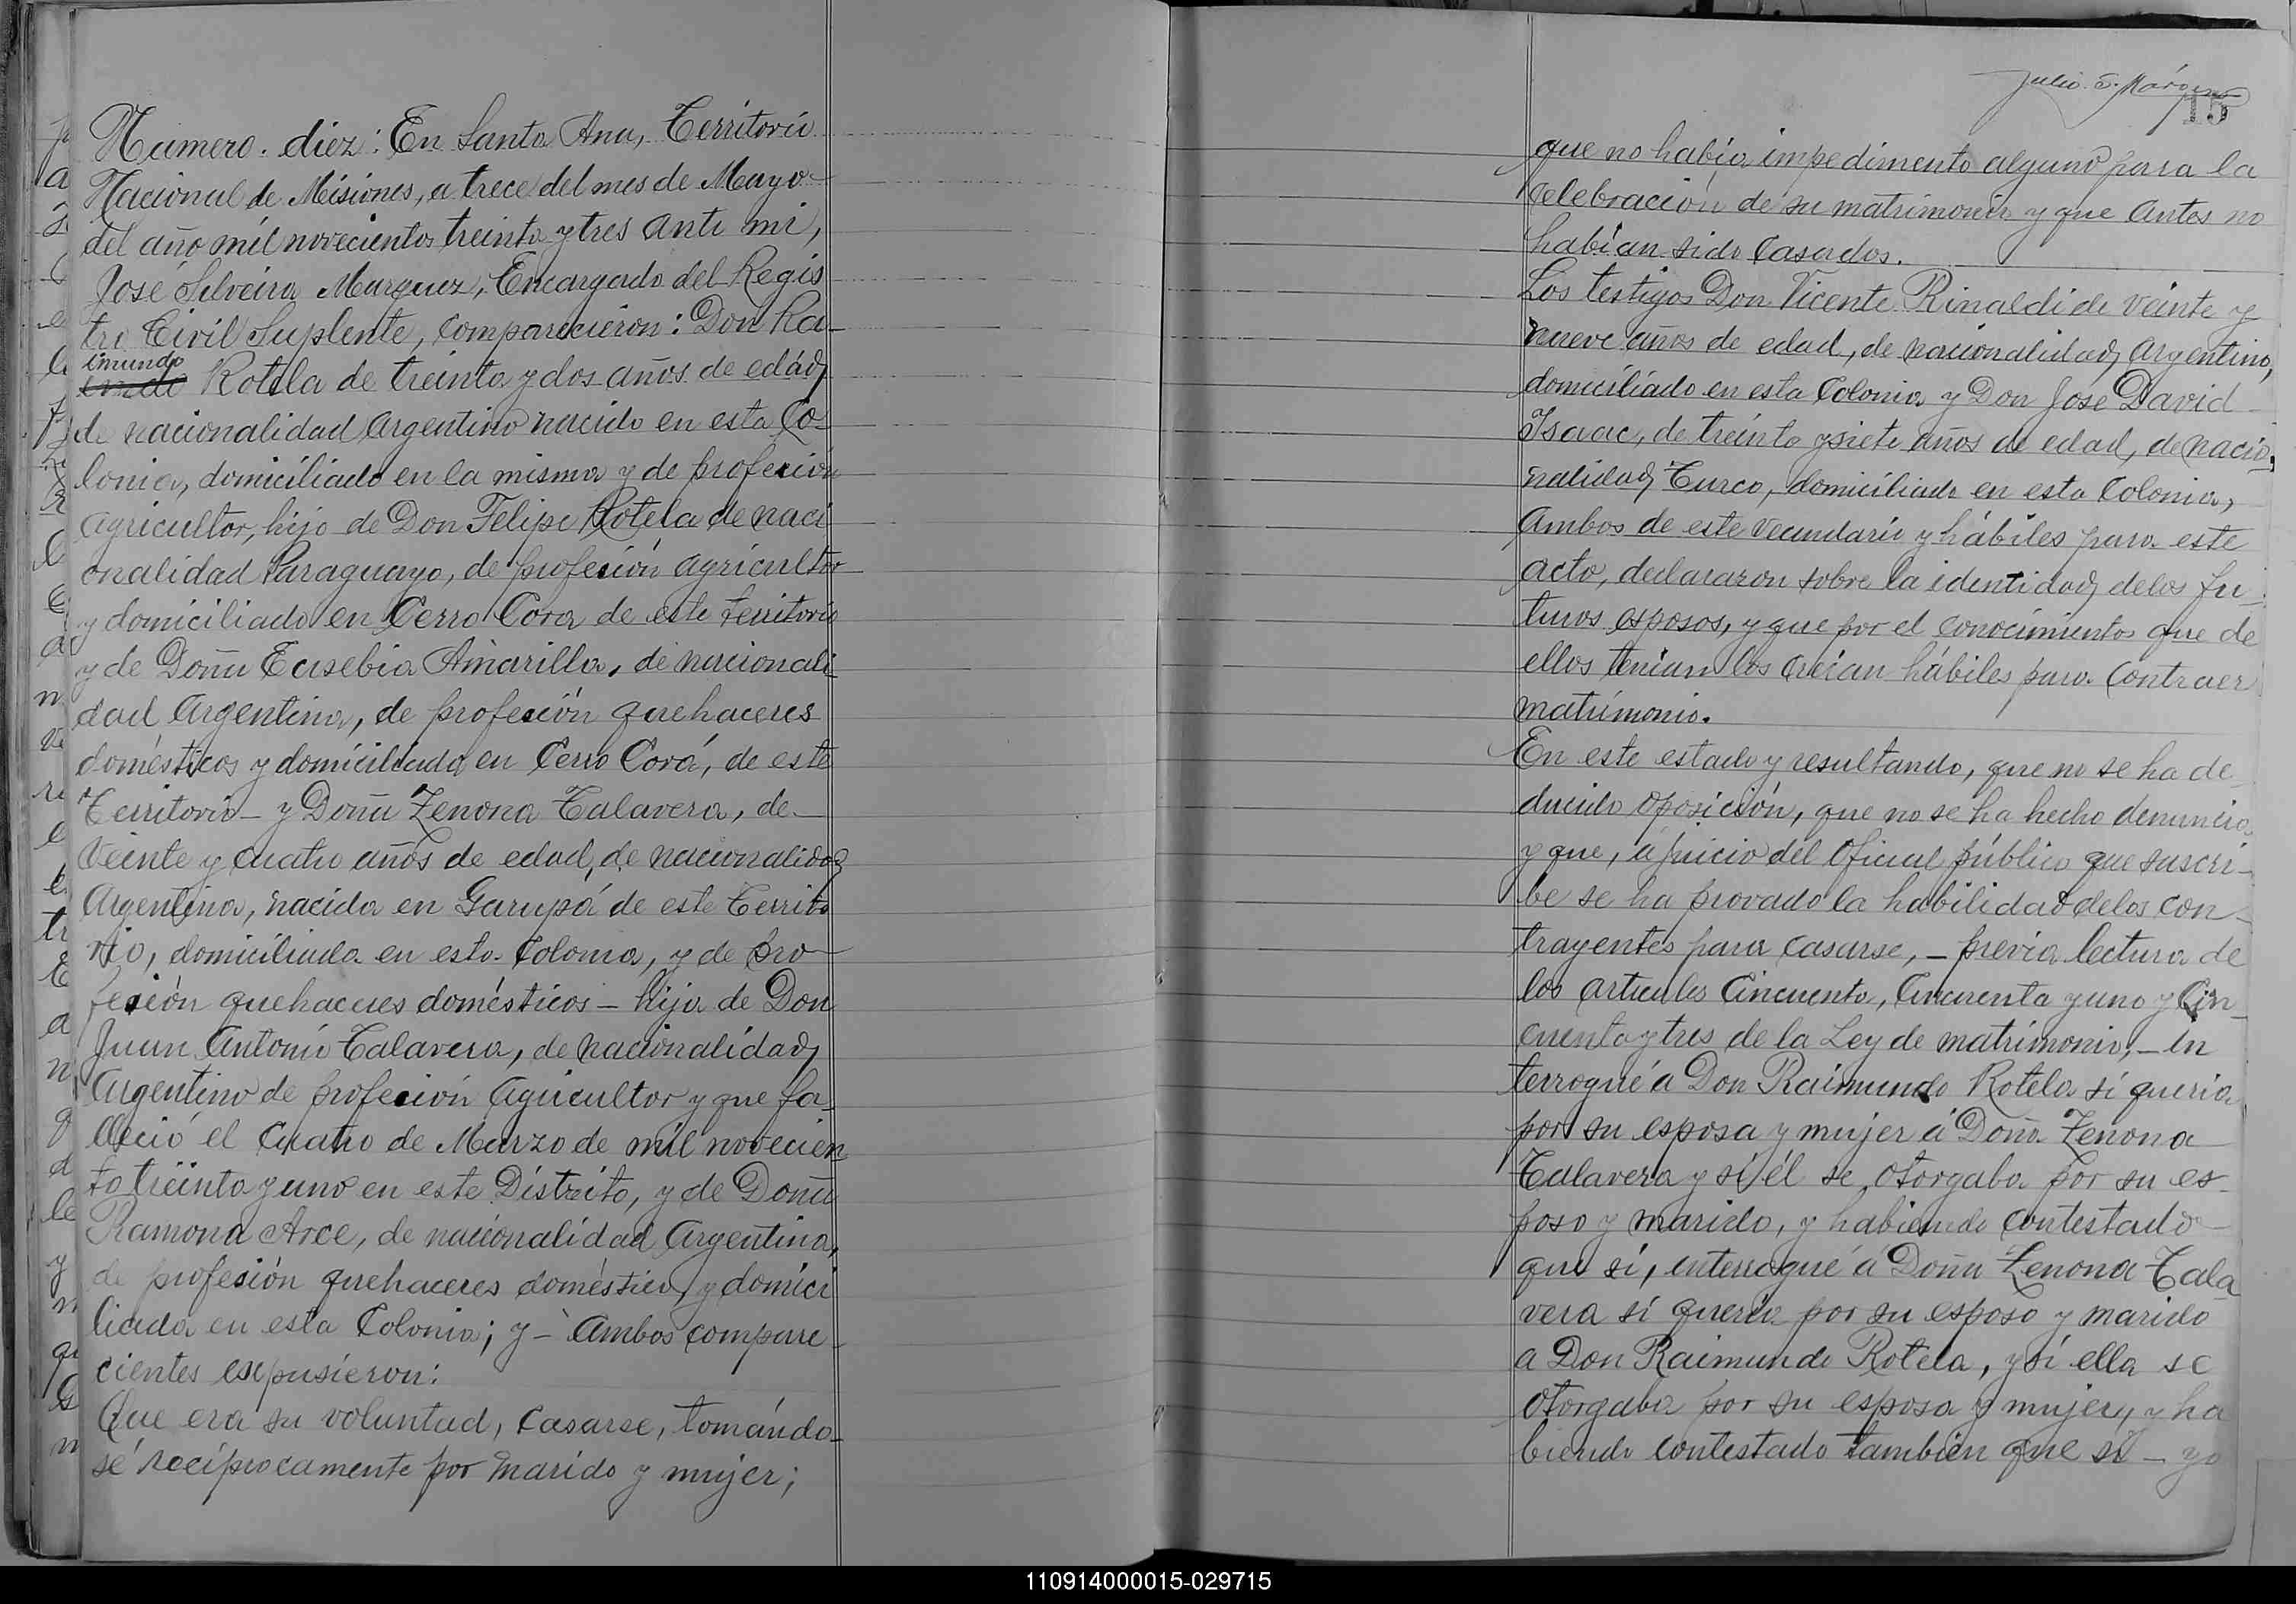 Numero. diez: En Santa Ana, Territorio
Nacional de Misiones, a trece del mes de Mayo
del año mil novecientos treinta y tres ante mi,
José Silveira Marquez, Encargado del Regis
tro Civil Suplente, comparecieron: Don Ra-
imundo
Rotela de treinta y dos años de edad,
de nacionalidad Argentino nacido en esta Co-
lonia, domiciliado en la misma y de profecion
Agricultor, hijo de Don Felipe Rotela de naci
onalidad Paraguayo, de profeción agricultor
y domiciliado en Cerro Cora de este territorio
y de Doña Eusebia Amarilla, de nacionali
dad Argentina, de profeción quehaceres
domésticos y domiciliada en Cerro Corá, de este
Territorio - y Doña Zenona Talavera, de
veinte y cuatro años de edad, de nacionalidad
Argentina, nacida en Garupá de este Territo
rio, domiciliada en esta Colonia, y de pro-
feción quehaceres domésticos - hija de Don
Juan Antonio Talavera, de nacionalidad
Argentino de profeción Agricultor y que fa-
lleció el Cuatro de Marzo de mil novecien
to treinta y uno en este Distrito, y de Doña
Ramona Arce, de nacionalidad Argentina,
de profesión quehaceres doméstico, y domici
liada en esta Colonia; y - Ambos compare-
cientes expusieron:
Que era su voluntad, casarse, tomándo-
sé recíprocamente por marido y mujer;
Julio S. Márquez
15
que no había impedimento alguno para la
celebración de su matrimonio y que antes no
habían sido casados.
Los testigos Don Vicente Rinaldi de veinte y
nueve años de edad, de nacionalidad Argentino,
domiciliado en esta Colonia y Don Jose David
Isaac, de treinta y siete años de edad, de nacio-
nalidad Turco, domiciliado en esta Colonia,
Ambos de este vecundario y hábiles para este
acto, declararon sobre la identidad delos fu-
turos esposos, y que por el conocimientos que de
ellos tenian los creian hábiles para contraer
matrimonio.
En este estado y resultando, que no se ha de-
ducido oposición, que no se ha hecho denuncia
y que, á juicio del Oficial público que suscri-
be se ha provado la habilidad delos con-
trayentes para casarse, - previa lectura de
los articulos Cincuenta, Cincuenta y uno y Cin-
cuenta y tres de la Ley de matrimonio, - in
terrogué á Don Raimundo Rotela si queria
por su esposa y mujer á Doña Zenona
Talavera y sí él se otorgaba por su es-
poso y marido, y habiendo contestado
que sí, interrogué á Doña Zenona Tala
vera sí queria por su esposo y marido
a Don Raimundo Rotela, y sí ella se
otorgaba por su esposa y mujer, y ha
biendo contestado también que sí - yo
110914000015-029715